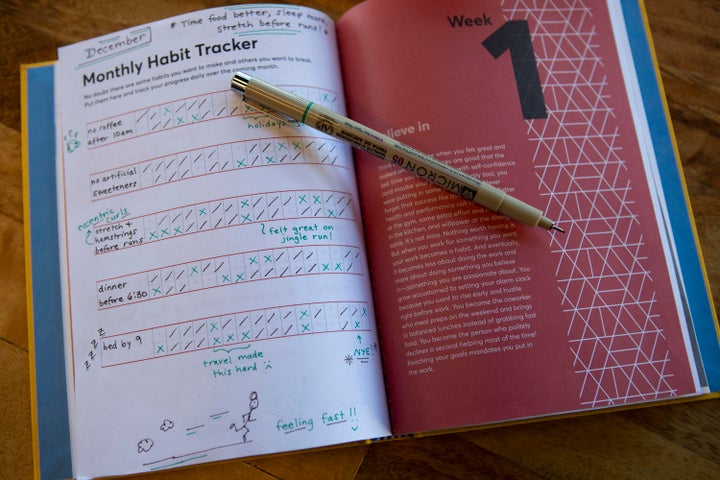 * Time food better, sleep more,
Stretch before runs! *
December
Monthly Habit Tracker
No doubt there are some habits you want to make and others you want to break.
Put them here and track your progress daily over the coming month.
no coffee
after 10am
holidays
no artificial
sweeteners
eccentric
curls
stretch
hamstrings
before runs
felt great on
jingle run!
dinner
before 6:30
z
z
z
z
bed by 9
travel made
this hard
* NYE! *
feeling fast!!
MICRON 05
Week
1
lieve in
when you felt great and
are good that the
with self-confidence
last time you
(and maybe your
were putting in some
forget that success like
health and performance
at the gym, some extra effort and
in the kitchen, and willpower at the
table. It's not easy. Nothing worth having is.
But when you work for something you want,
your work becomes a habit. And eventually,
it becomes less about doing the work and
more about doing something you believe
in—something you are passionate about. You
grow accustomed to setting your alarm clock
because you want to rise early and hustle
right before work. You become the coworker
who meal preps on the weekend and brings
in balanced lunches instead of grabbing fast
food. You become the person who politely
declines a second helping most of the time!
Reaching your goals mandates you put in
the work.